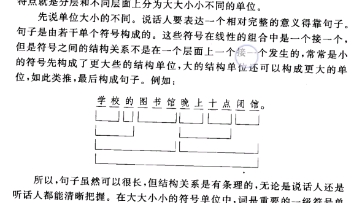 特点就是分层和不同层面上分为大大小小不同的单位。
先说单位大小的不同。说话人要表达一个相对完整的意义得靠句子。
句子是由若干单个符号构成的。这些符号在线性的组合中是一个接一个,
但是符号之间的结构关系不是在一个层面上一个接一个发生的,常常是小
的符号先构成了更大些的结构单位,大的结构单位还可以构成更大的单
位,如此类推,最后构成句子。例如:
学校的图书馆晚上十点闭馆。
所以,句子虽然可以很长,但结构关系是有条理的,无论是说话人还是
听话人都能清晰把握。在大大小小的符号单位中,词是重要的一级符号单